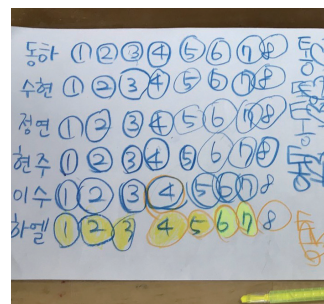 동하 ① ② ③ ④ ⑤ ⑥ ⑦ 8
수현 ① ② ③ ④ ⑤ ⑥ ⑦ 8
정연 ① ② ③ ④ ⑤ ⑥ ⑦ ⑧
현주 ① ② ③ ④ ⑤ ⑥ ⑦ ⑧
이수 ① ② ③ ④ ⑤ ⑥ ⑦ 8
하엘 ① ② ③ ④ ⑤ ⑥ ⑦ ⑧